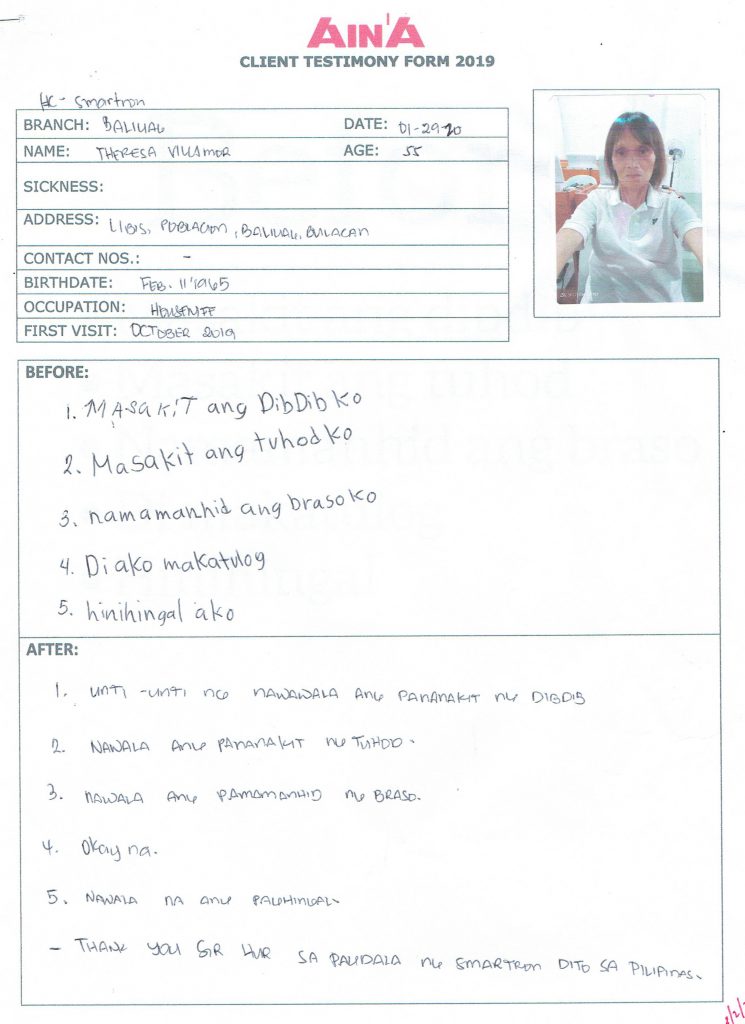 AIN'A
CLIENT TESTIMONY FORM 2019
HC - Smartron
BRANCH: BALIUAG DATE: 01-29-20
NAME: THERESA VILLAMOR AGE: 55
SICKNESS:
ADDRESS: LIBIS, POBLACION, BALIUAG, BULACAN
CONTACT NOS.: -
BIRTHDATE: FEB. 11 1965
OCCUPATION: HOUSEWIFE
FIRST VISIT: OCTOBER 2019
BEFORE:
1. MASAKIT ang DibDib ko
2. Masakit ang tuhod ko
3. namamanhid ang braso ko
4. Di ako makatulog
5. hinihingal ako
AFTER:
1. UNTI-UNTI NG NAWAWALA ANG PANANAKIT NG DIBDIB
2. NAWALA ANG PANANAKIT NG TUHOD.
3. NAWALA ANG PAMAMANHID NG BRASO.
4. Okay na.
5. NAWALA NA ANG PAGHINGAL.
- THANK YOU SIR HUR SA PAGDALA NG SMARTRON DITO SA PILIPINAS.